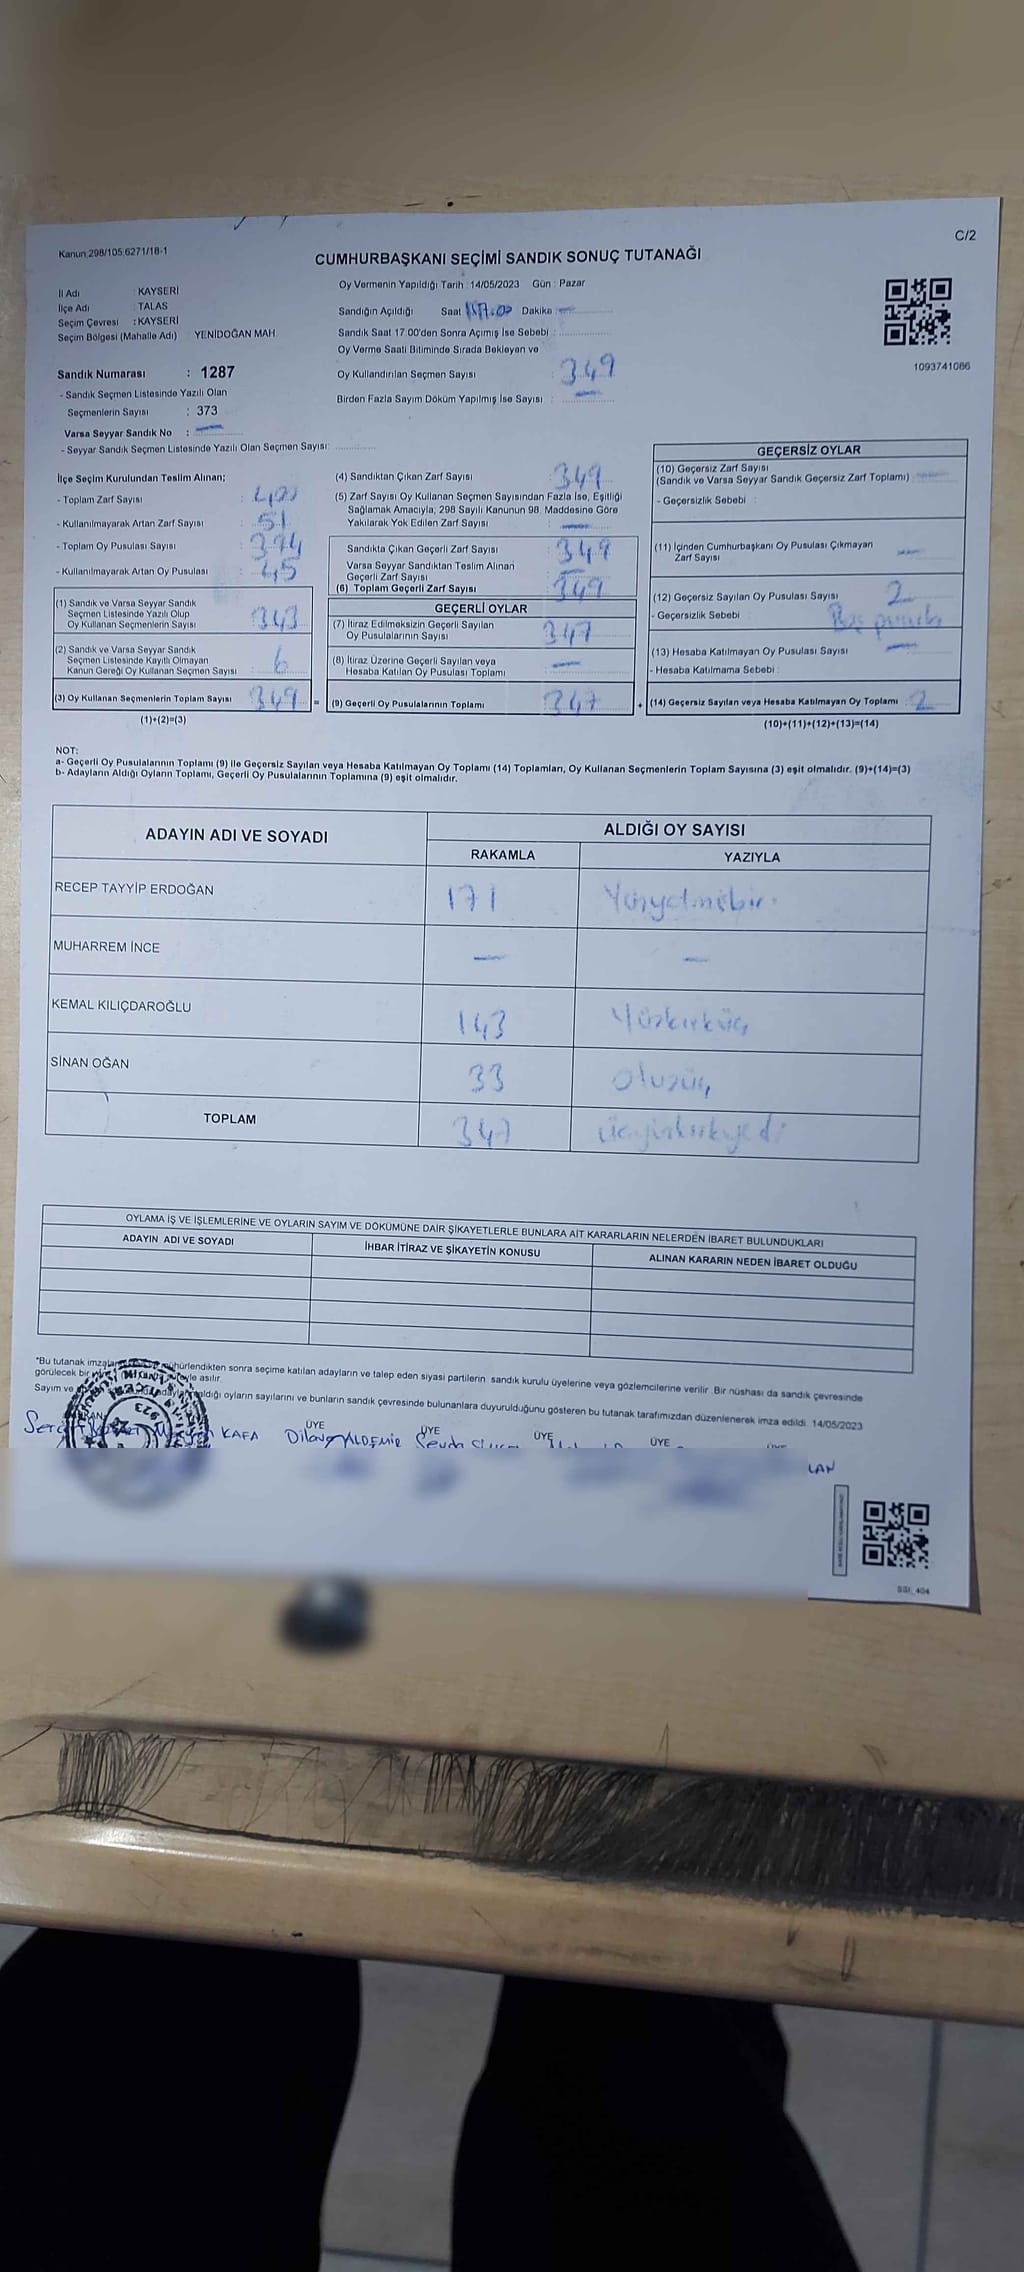 Kanun:298/105,6271/18-1
C/2
CUMHURBAŞKANI SEÇİMİ SANDIK SONUÇ TUTANAĞI
İl Adı : KAYSERİ
İlçe Adı : TALAS
Seçim Çevresi : KAYSERİ
Seçim Bölgesi (Mahalle Adı) YENİDOĞAN MAH.
Sandık Numarası : 1287
- Sandık Seçmen Listesinde Yazılı Olan
Seçmenlerin Sayısı : 373
Varsa Seyyar Sandık No : —
- Seyyar Sandık Seçmen Listesinde Yazılı Olan Seçmen Sayısı:
Oy Vermenin Yapıldığı Tarih :14/05/2023 Gün : Pazar
Sandığın Açıldığı Saat 17.00 Dakika : —
Sandık Saat 17.00'den Sonra Açımış İse Sebebi :
Oy Verme Saati Bitiminde Sırada Bekleyen ve
Oy Kullandırılan Seçmen Sayısı : 349
Birden Fazla Sayım Döküm Yapılmış İse Sayısı : —
1093741086
İlçe Seçim Kurulundan Teslim Alınan;
- Toplam Zarf Sayısı :
- Kullanılmayarak Artan Zarf Sayısı : 51
- Toplam Oy Pusulası Sayısı : 394
- Kullanılmayarak Artan Oy Pusulası : 45
(1) Sandık ve Varsa Seyyar Sandık
Seçmen Listesinde Yazılı Olup
Oy Kullanan Seçmenlerin Sayısı : 343
(2) Sandık ve Varsa Seyyar Sandık
Seçmen Listesinde Kayıtlı Olmayan
Kanun Gereği Oy Kullanan Seçmen Sayısı : 6
(3) Oy Kullanan Seçmenlerin Toplam Sayısı : 349 =
(1)+(2)=(3)
(4) Sandıktan Çıkan Zarf Sayısı : 349
(5) Zarf Sayısı Oy Kullanan Seçmen Sayısından Fazla İse, Eşitliği
Sağlamak Amacıyla, 298 Sayılı Kanunun 98. Maddesine Göre
Yakılarak Yok Edilen Zarf Sayısı : —
Sandıkta Çıkan Geçerli Zarf Sayısı : 349
Varsa Seyyar Sandıktan Teslim Alınan
Geçerli Zarf Sayısı : —
(6) Toplam Geçerli Zarf Sayısı : 349
GEÇERLİ OYLAR
(7) İtiraz Edilmeksizin Geçerli Sayılan
Oy Pusulalarının Sayısı : 347
(8) İtiraz Üzerine Geçerli Sayılan veya
Hesaba Katılan Oy Pusulası Toplamı : —
(9) Geçerli Oy Pusulalarının Toplamı : 347 +
GEÇERSİZ OYLAR
(10) Geçersiz Zarf Sayısı
(Sandık ve Varsa Seyyar Sandık Geçersiz Zarf Toplamı) : —
- Geçersizlik Sebebi :
(11) İçinden Cumhurbaşkanı Oy Pusulası Çıkmayan
Zarf Sayısı : —
(12) Geçersiz Sayılan Oy Pusulası Sayısı : 2
- Geçersizlik Sebebi : Boş pusula
(13) Hesaba Katılmayan Oy Pusulası Sayısı : —
- Hesaba Katılmama Sebebi :
(14) Geçersiz Sayılan veya Hesaba Katılmayan Oy Toplamı : 2
(10)+(11)+(12)+(13)=(14)
NOT:
a- Geçerli Oy Pusulalarının Toplamı (9) ile Geçersiz Sayılan veya Hesaba Katılmayan Oy Toplamı (14) Toplamları, Oy Kullanan Seçmenlerin Toplam Sayısına (3) eşit olmalıdır. (9)+(14)=(3)
b- Adayların Aldığı Oyların Toplamı, Geçerli Oy Pusulalarının Toplamına (9) eşit olmalıdır.
ADAYIN ADI VE SOYADI ALDIĞI OY SAYISI
RAKAMLA YAZIYLA
RECEP TAYYİP ERDOĞAN 171 Yüzyetmişbir
MUHARREM İNCE — —
KEMAL KILIÇDAROĞLU 143 Yüzkırküç
SİNAN OĞAN 33 otuzüç
TOPLAM 347 üçyüzkırkyedi
OYLAMA İŞ VE İŞLEMLERİNE VE OYLARIN SAYIM VE DÖKÜMÜNE DAİR ŞİKAYETLERLE BUNLARA AİT KARARLARIN NELERDEN İBARET BULUNDUKLARI
ADAYIN ADI VE SOYADI İHBAR İTİRAZ VE ŞİKAYETİN KONUSU ALINAN KARARIN NEDEN İBARET OLDUĞU
*Bu tutanak mühürlendikten sonra seçime katılan adayların ve talep eden siyasi partilerin sandık kurulu üyelerine veya gözlemcilerine verilir. Bir nüshası da sandık çevresinde
görülecek bir asılır.
Sayım ve aldığı oyların sayılarını ve bunların sandık çevresinde bulunanlara duyurulduğunu gösteren bu tutanak tarafımızdan düzenlenerek imza edildi. 14/05/2023
ÜYE ÜYE ÜYE ÜYE
KAFA Dilan ALDEMİR Sevda
LAN
SSI_404